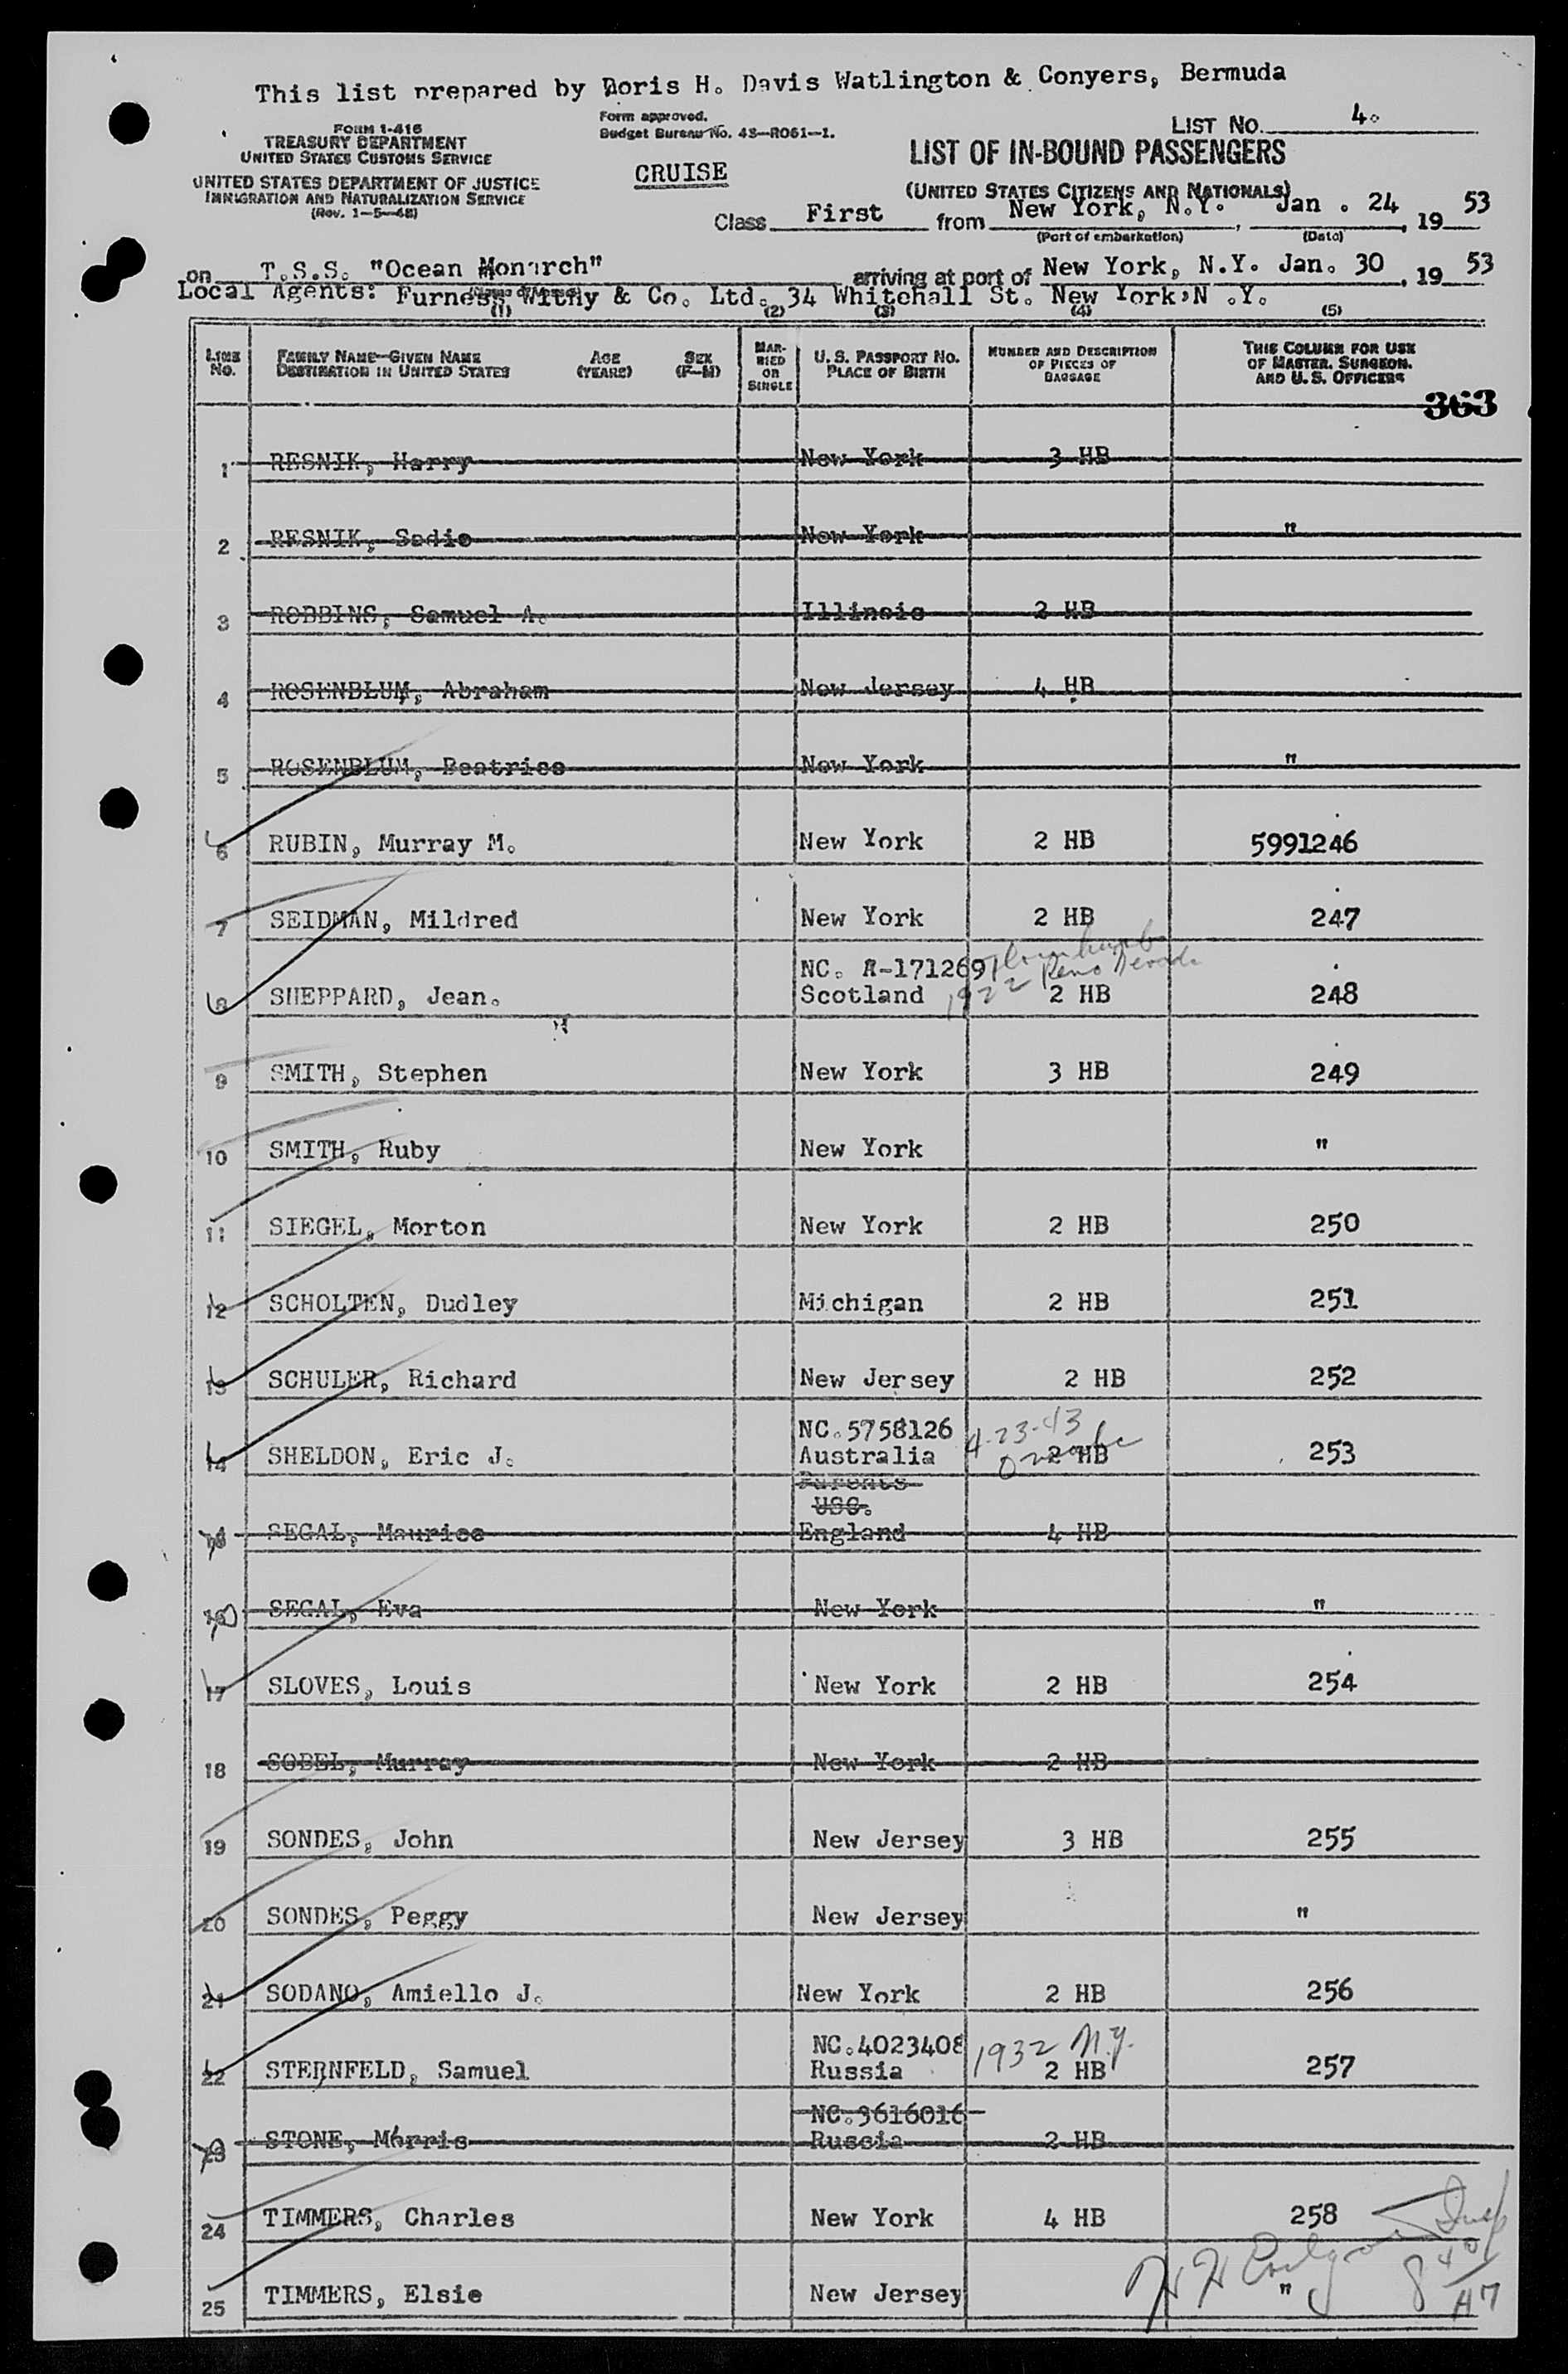 This list prepared by Doris H. Davis Watlington & Conyers, Bermuda
FORM 1-416
TREASURY DEPARTMENT
UNITED STATES CUSTOMS SERVICE
UNITED STATES DEPARTMENT OF JUSTICE
IMMIGRATION AND NATURALIZATION SERVICE
(Rev. 1-5-48)
Form approved.
Budget Bureau No. 43-R061-1.
CRUISE
LIST NO. 4.
LIST OF IN-BOUND PASSENGERS
(UNITED STATES CITIZENS AND NATIONALS)
Class First from New York, N.Y. Jan . 24, 1953
(Port of embarkation) (Date)
on T.S.S. "Ocean Monarch" arriving at port of New York, N.Y. Jan. 30, 1953
(Name of Vessel)
Local Agents: Furness Withy & Co. Ltd. 34 Whitehall St. New York,N .Y.
(1) (2) (3) (4) (5)
LINE NO. FAMILY NAME—GIVEN NAME DESTINATION IN UNITED STATES AGE (YEARS) SEX (F-M) MARRIED OR SINGLE U. S. PASSPORT NO. PLACE OF BIRTH NUMBER AND DESCRIPTION OF PIECES OF BAGGAGE THIS COLUMN FOR USE OF MASTER, SURGEON, AND U. S. OFFICERS
363
1 RESNIK, Harry New York 3 HB
2 RESNIK, Sadie New York "
3 ROBBINS, Samuel A. Illinois 2 HB
4 ROSENBLUM, Abraham New Jersey 4 HB
5 ROSENBLUM, Beatrice New York "
6 RUBIN, Murray M. New York 2 HB 5991246
7 SEIDMAN, Mildred New York 2 HB 247
NC. R-171269
1922 Reno Nevada
8 SHEPPARD, Jean. Scotland 2 HB 248
9 SMITH, Stephen New York 3 HB 249
10 SMITH, Ruby New York "
11 SIEGEL, Morton New York 2 HB 250
12 SCHOLTEN, Dudley Michigan 2 HB 251
13 SCHULER, Richard New Jersey 2 HB 252
NC.5758126 4-23-43
14 SHELDON, Eric J. Australia 2 HB 253
Parents
USC.
15 SEGAL, Maurice England 4 HB
16 SEGAL, Eva New York "
17 SLOVES, Louis New York 2 HB 254
18 SOBEL, Murray New York 2 HB
19 SONDES, John New Jersey 3 HB 255
20 SONDES, Peggy New Jersey "
21 SODANO, Amiello J. New York 2 HB 256
NC.4023408 1932 N.Y.
22 STERNFELD, Samuel Russia 2 HB 257
NC.3616016
23 STONE, Morris Russia 2 HB
24 TIMMERS, Charles New York 4 HB 258
25 TIMMERS, Elsie New Jersey "